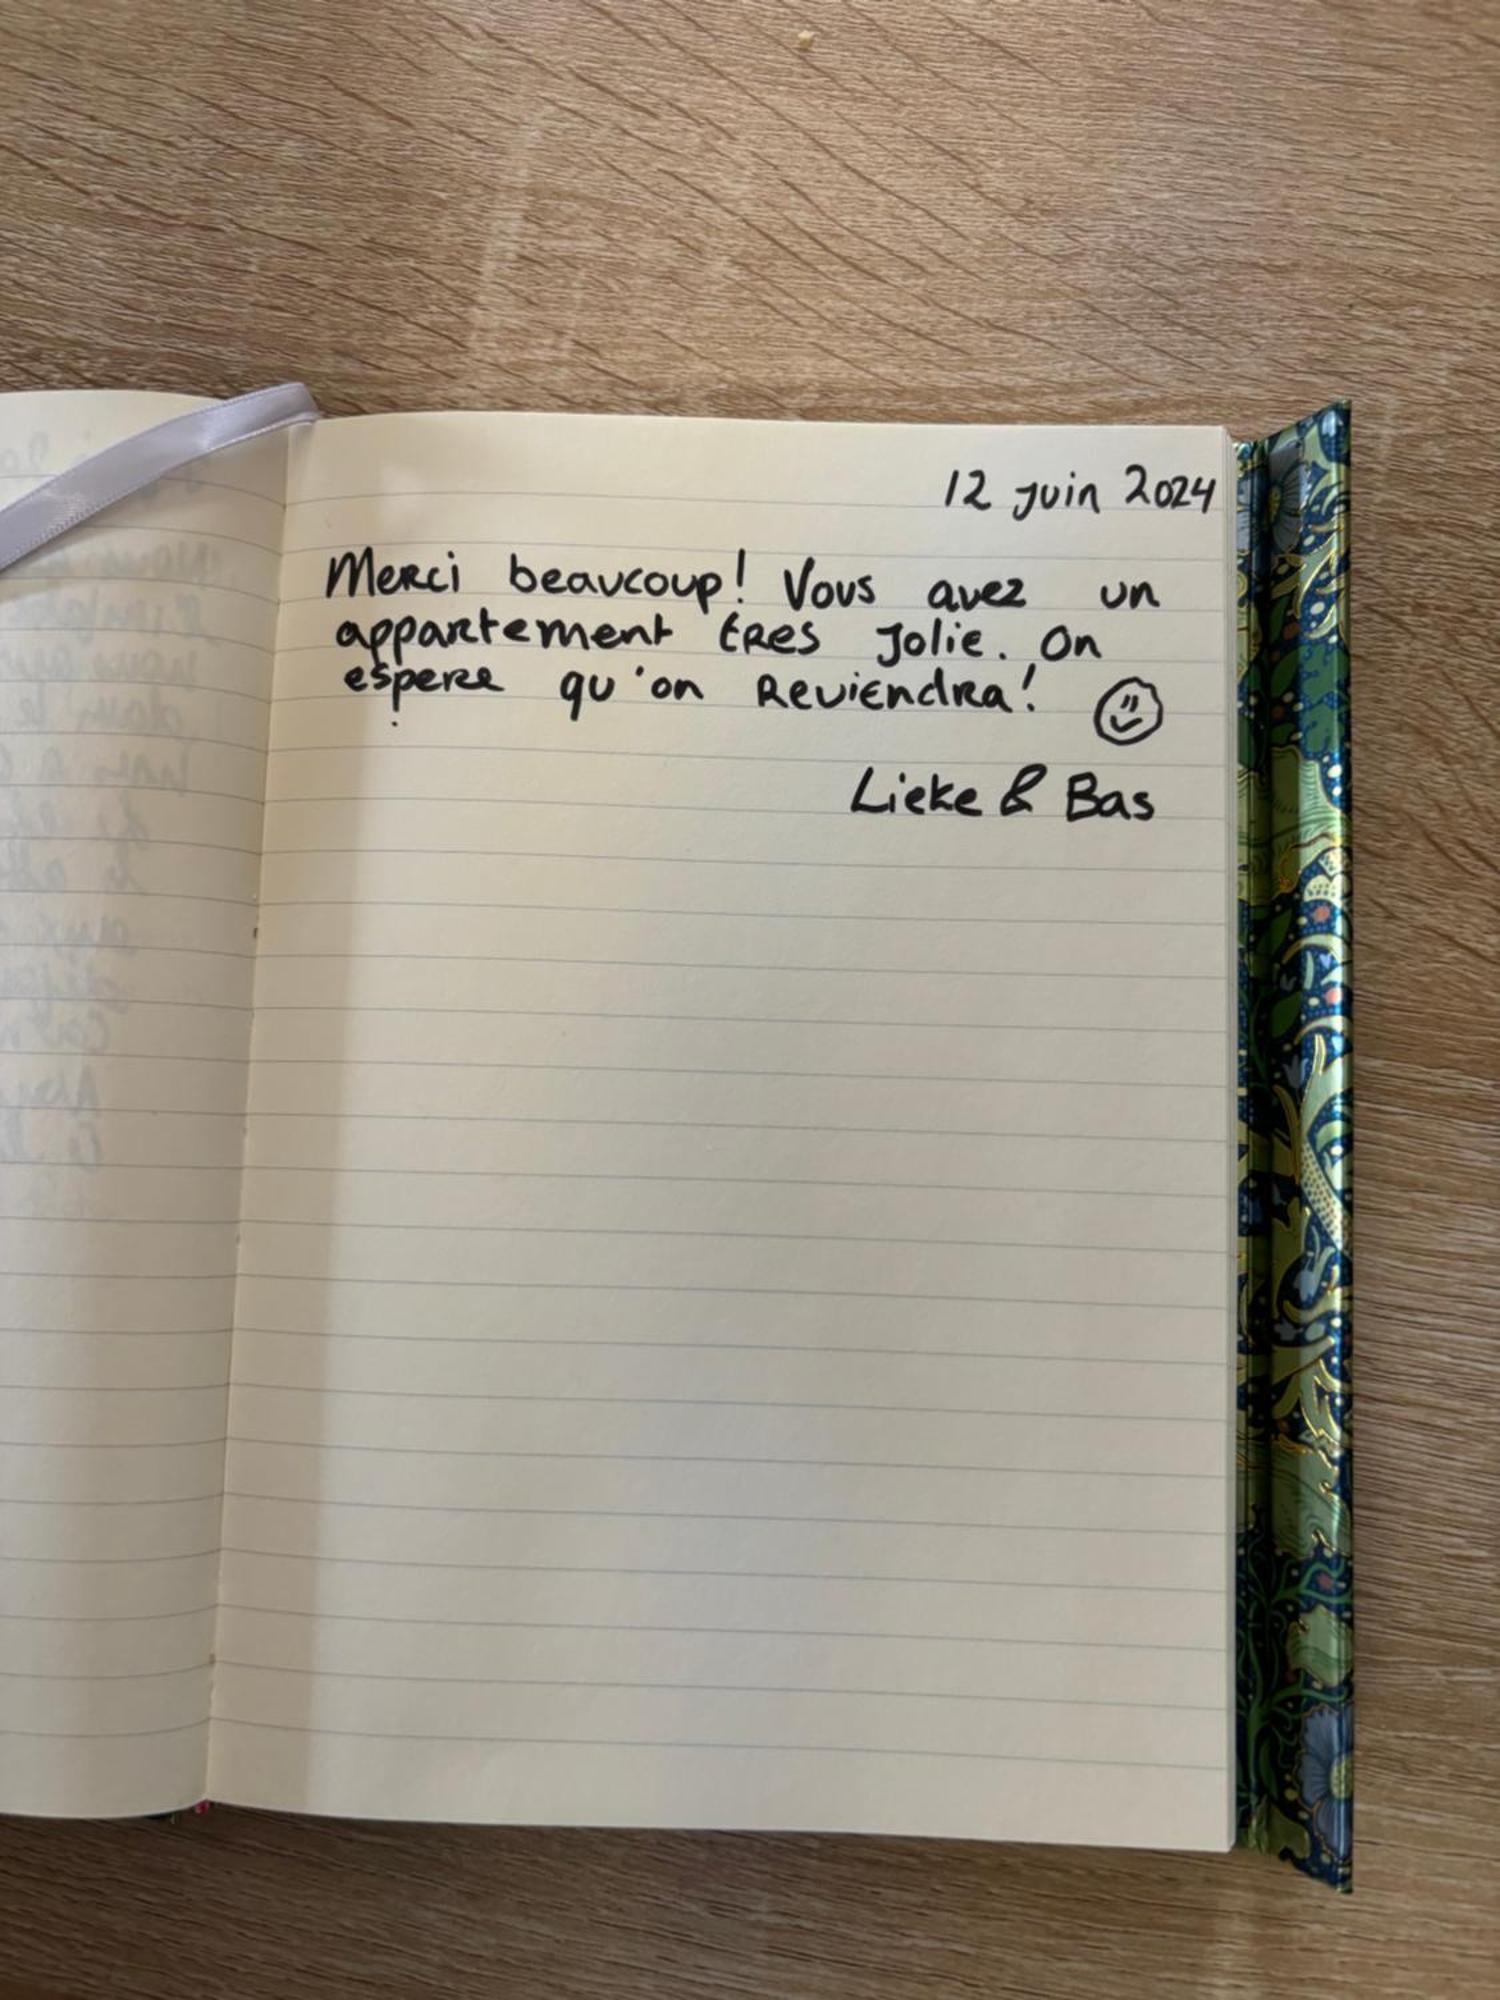 12 juin 2024
Merci beaucoup! Vous avez un
appartement tres jolie. On
espere qu'on Reviendra!
Lieke & Bas